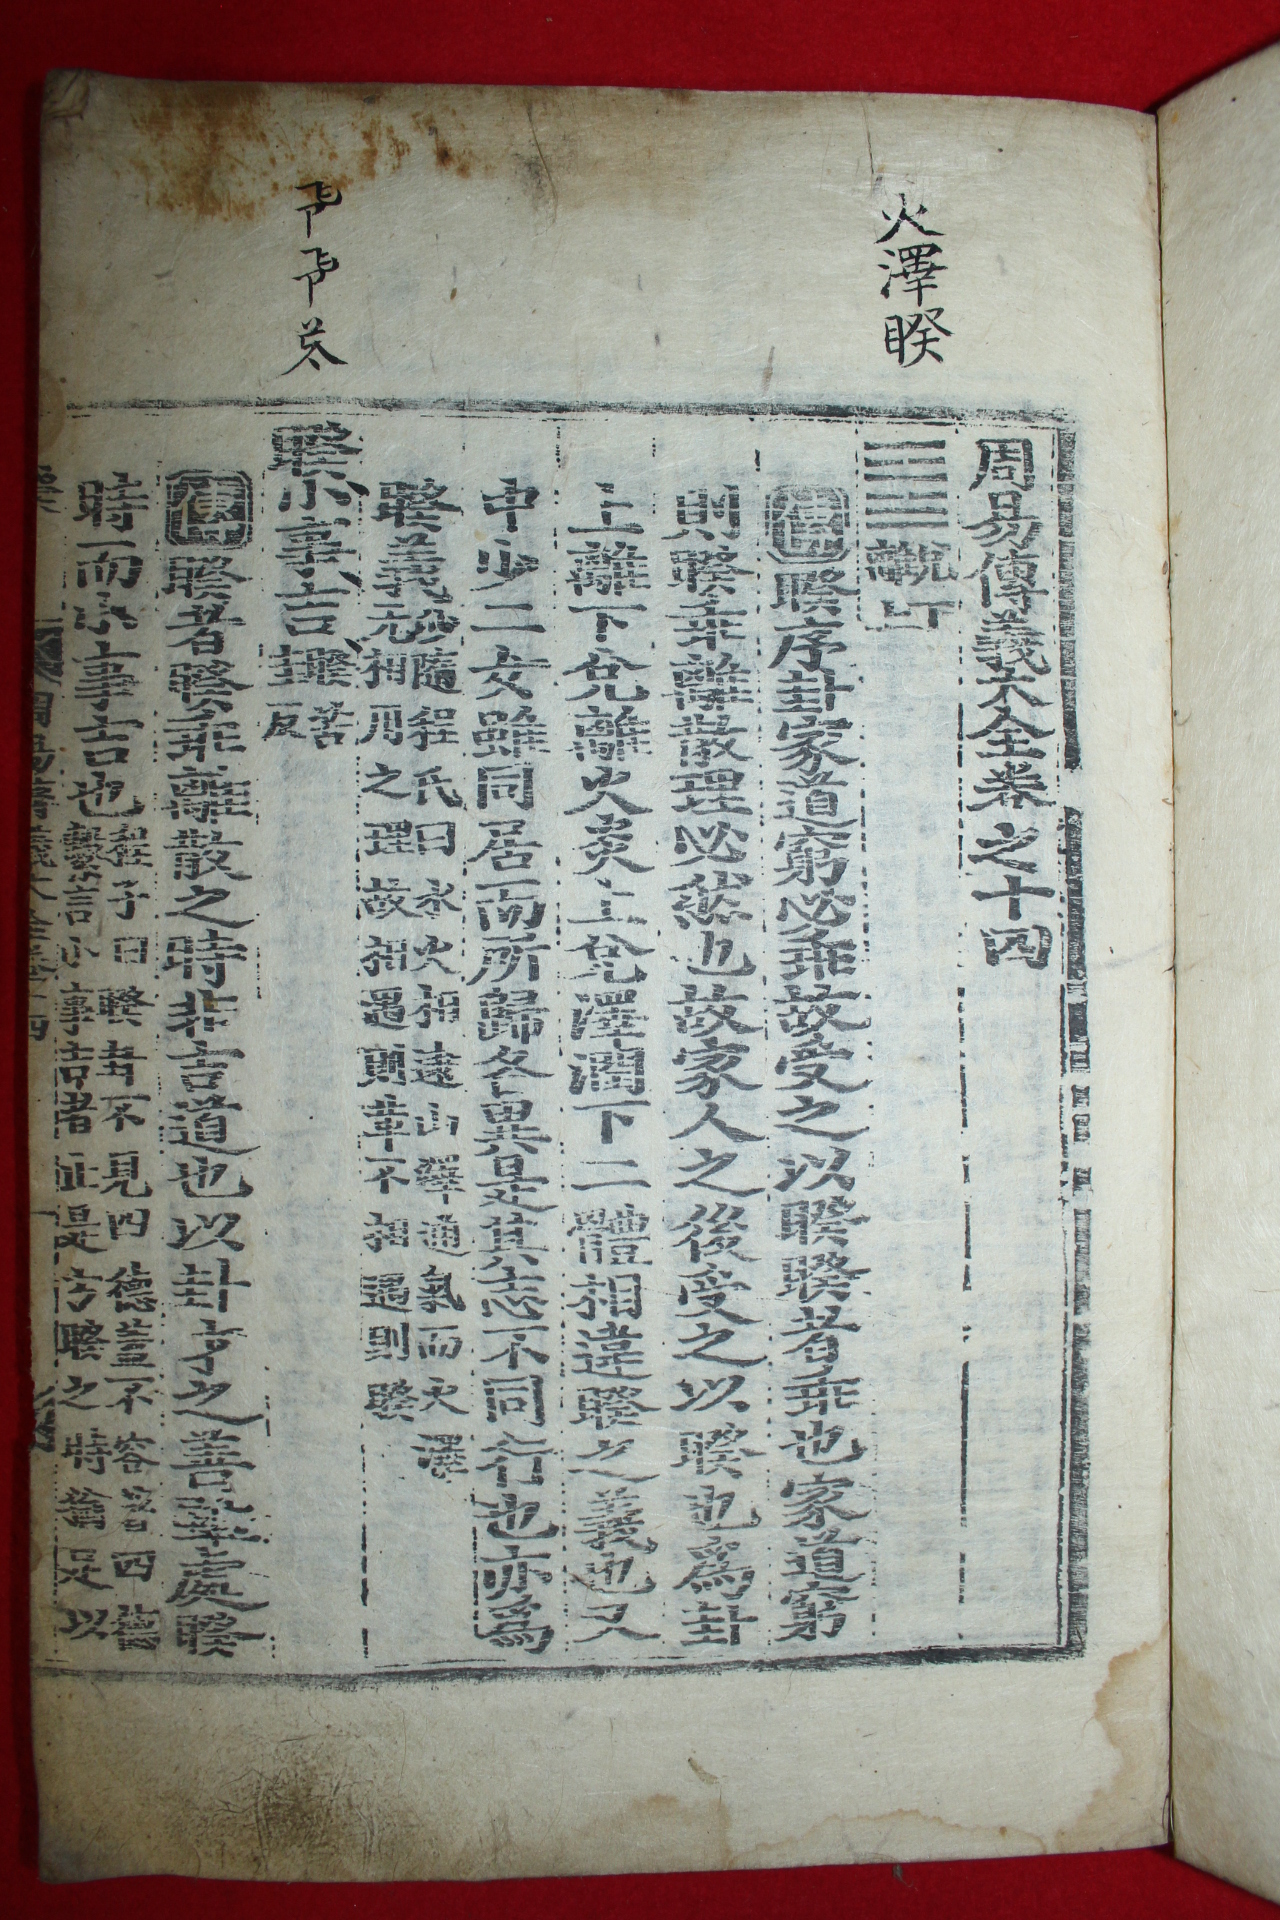 火澤睽
周易傳義大全卷之十四
䷥ 離上 兌下
傳 睽序卦家道窮必乖故受之以睽睽者乖也家道窮
則睽乖離散理必然也故家人之後受之以睽也爲卦
上離下兌離火炎上兌澤潤下二體相違睽之義也又
中少二女雖同居而所歸各異是其志不同行也亦爲
睽義 隨程氏曰水火相逮山澤通氣而火澤
无相用之理故相遇則革不相遇則睽
睽小事吉 睽苦
圭反
傳 睽者睽乖離散之時非吉道也以卦才之善雖處睽
時而小事吉也 程子曰睽卦不見四德蓋不容著四德
繇言小事吉者止是方睽之時猶足以